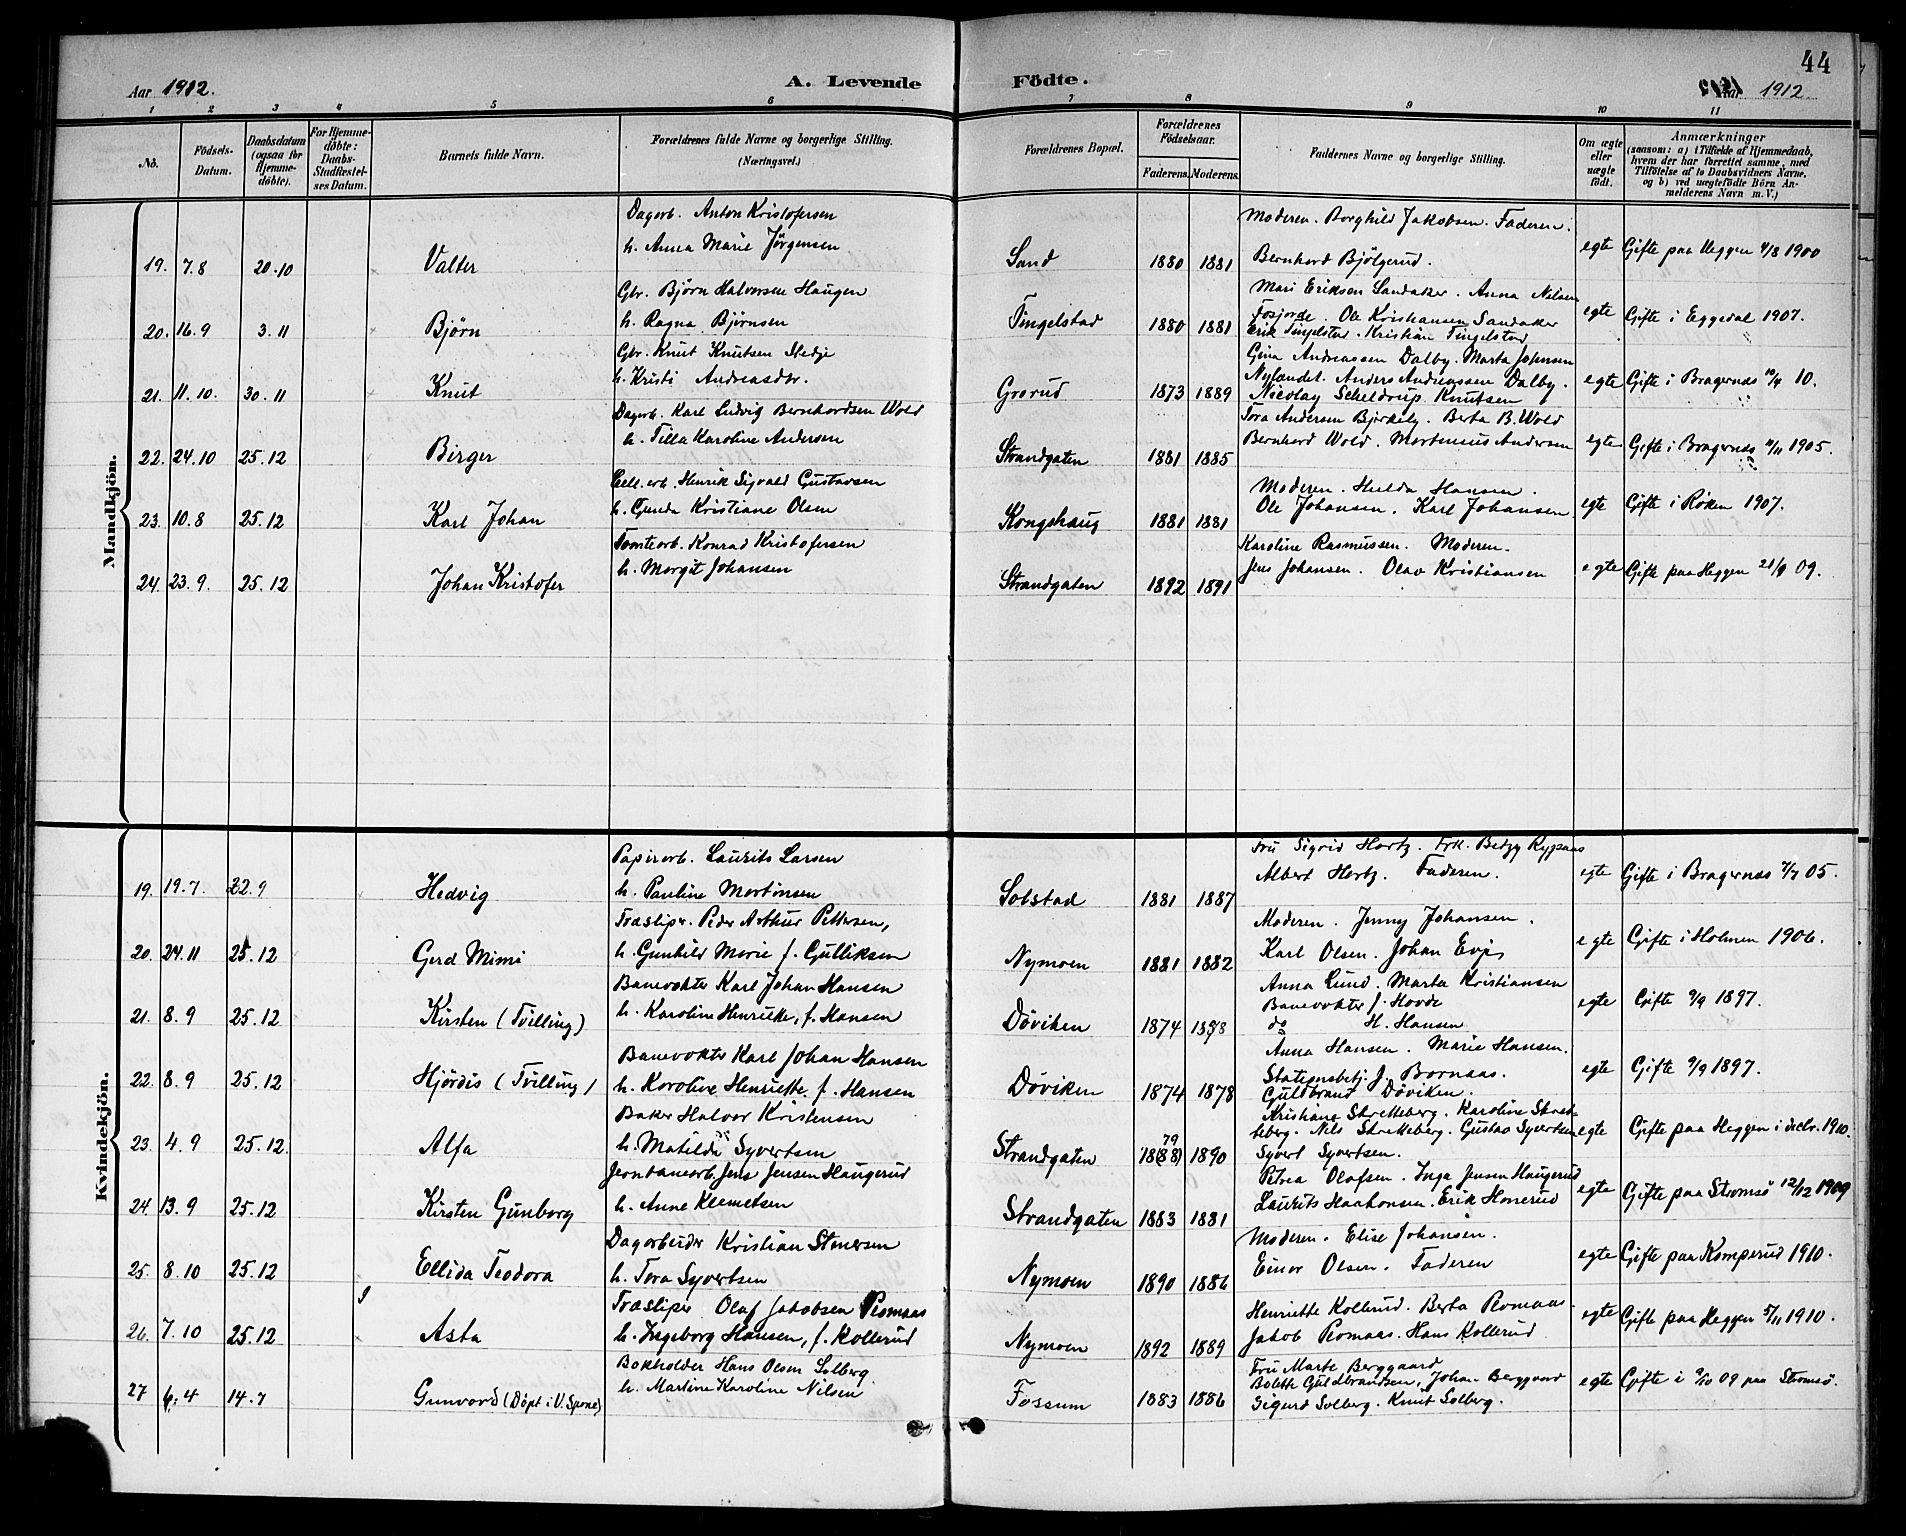 44
Aar 1912.
A. Levende Födte.
Aar 1912
1 2 3 4 5 6 7 8 9 10 11
No.
Födsels-
Datum.
Daabsdatum
(ogsaa for
Hjemme-
döbte).
For Hjemme-
döbte:
Daabs-
Stadfæstel-
ses Datum.
Barnets fulde Navn.
Forældrenes fulde Navne og borgerlige Stilling.
(Næringsvei.)
Forældrenes Bopæl.
Forældrenes
Födselsaar.
Faderens. Moderens.
Faddernes Navne og borgerlige Stilling.
Om ægte
eller
uægte
födt.
Anmærkninger
(saasom: a) i Tilfælde af Hjemmedaab,
hvem der har forrettet samme, med
Tilföielse af to Daabsvidners Navne.
og b) ved uægtefödte Börn An-
melderens Navn m. V.)
Mandkjön.
Dagarb. Anton Kristofersen
h. Anna Marie Jørgensen
19. 7.8 20.10 Valter
Sand 1880 1881
Moderen. Borghild Jakobsen. Faderen.
Bernhard Bjølgerud.
egte Gifte paa Heggen 4/8 1900
Gbr. Bjørn Halvorsen Haugen
h. Ragna Bjørnsen
20. 16.9 3.11 Bjørn
Tingelstad 1880 1881
Mari Eriksen Sandaker. Anna Nilsen
Fosjorde. Ole Kristiansen Sandaker
Erik Tingelstad. Kristian Tingelstad
egte Gifte i Eggedal 1907.
Gbr. Knut Knutsen Medje
h. Kristi Andreasdtr.
21. 11.10. 30.11 Knut
Grorud 1873 1889
Gina Andreassen Dalby. Marta Johnsen
Nylandet. Anders Andreassen Dalby.
Nicolay Scheldrup Knutsen
egte Gifte i Bragernæs 10/4 10.
Dagarb. Karl Ludvig Bernhardsen Wold
h. Tilla Karoline Andersen
22. 24.10 25.12 Birger
Strandgaten 1881 1885
Tora Andersen Bjerkely. Berta B. Wold
Bernhard Wold. Martinius Andersen
egte Gifte i Bragernæs 1905.
Cell. arb. Henrik Sigvald Gustavsen
h. Gunda Kristiane Olsen
23. 10.8 25.12 Karl Johan
Kongshaug 1881 1881
Moderen. Hulda Hansen.
Ole Johansen. Karl Johansen
egte Gifte i Røken 1907.
Tomtearb. Konrad Kristofersen
h. Margit Johansen
24. 23.9. 25.12 Johan Kristofer
Strandgaten 1892 1891
Karoline Rasmussen. Moderen.
Jens Johansen. Olav Kristiansen
egte Gifte paa Heggen 09.
Kvindekjön.
Papirarb. Laurits Larsen
h. Pauline Martinsen
19. 19.7. 22.9 Hedvig
Solstad 1881 1887
Fru Sigrid Hartz. Frk. Betzy Rypaas
Albert Hertz. Faderen.
egte Gifte i Bragernæs 7/7 05.
Træsliper. Peder Arthur Pettersen,
h. Gunhild Marie f. Gulliksen
20. 24.11 25.12 Gerd Mimi
Nymoen 1881 1882
Moderen. Jenny Johansen.
Karl Olsen. Johan Evje
egte Gifte i Holmen 1906.
Banevokter Karl Johan Hansen
h. Karoline Henriette, f. Hansen
21. 8.9 25.12 Kirsten (Tvilling)
Døviken 1874 1878
Anna Lund. Marta Kristiansen
Banevokter J. Hovde
do H. Hansen
egte Gifte 9/9 1897.
Banevokter Karl Johan Hansen
h. Karoline Henriette f. Hansen
22. 8.9 25.12 Hjördis (Tvilling)
Döviken 1874 1878
Anna Hansen. Marie Hansen.
Stationsbetj. J. Bornaas.
Guldbrand Döviken.
egte Gifte 9/9 1897.
Baker Halvor Kristensen
h. Matilde Syvertsen
23. 4.9 25.12. Alfa
Strandgaten 79 18(88) 1890
Kristiane Stretteberg. Karoline Strette-
berg. Nils Stretteberg. Gustav Syvertsen
Syvert Syvertsen.
egte Gifte paa Heggen i decbr. 1910.
Jernbanearb. Jens Jensen Haugerud
h. Anne Klemetsen
24. 13.9 25.12 Kirsten Gunborg
Strandgaten 1883 1881
Petrea Olafsen. Inga Jensen Haugerud
Laurits Haakonsen. Erik Honerud
egte Gifte paa Strømsö 12/12 1909
Dagarbeider Kristian Stenersen
h. Tora Syvertsen
25. 8.10 25.12 Ellida Teodora
Nymoen 1890 1886
Moderen. Elise Johansen.
Einar Olsen. Faderen
egte Gifte paa Komperud 1910.
Træsliper Olaf Jakobsen Plomaas
h. Ingeborg Hansen, f. Kollerud
26. 7.10 25.12 Asta
Nymoen 1892 1889
Henriette Kollerud. Berta Plomaas.
Jakob Plomaas. Hans Kollerud
egte Gifte paa Heggen 5/11 1910.
Bokholder Hans Olsen Solberg.
h. Martine Karoline Nilsen
27 6.4 14.7 Gunvord (Döpt i V. Spone)
Fossum 1883 1886
Fru Marte Berggaard
Bolette Guldbrandsen, Johan Berggaard
Sigurd Solberg. Knut Solberg.
egte Gifte i 09 paa Strømsö.